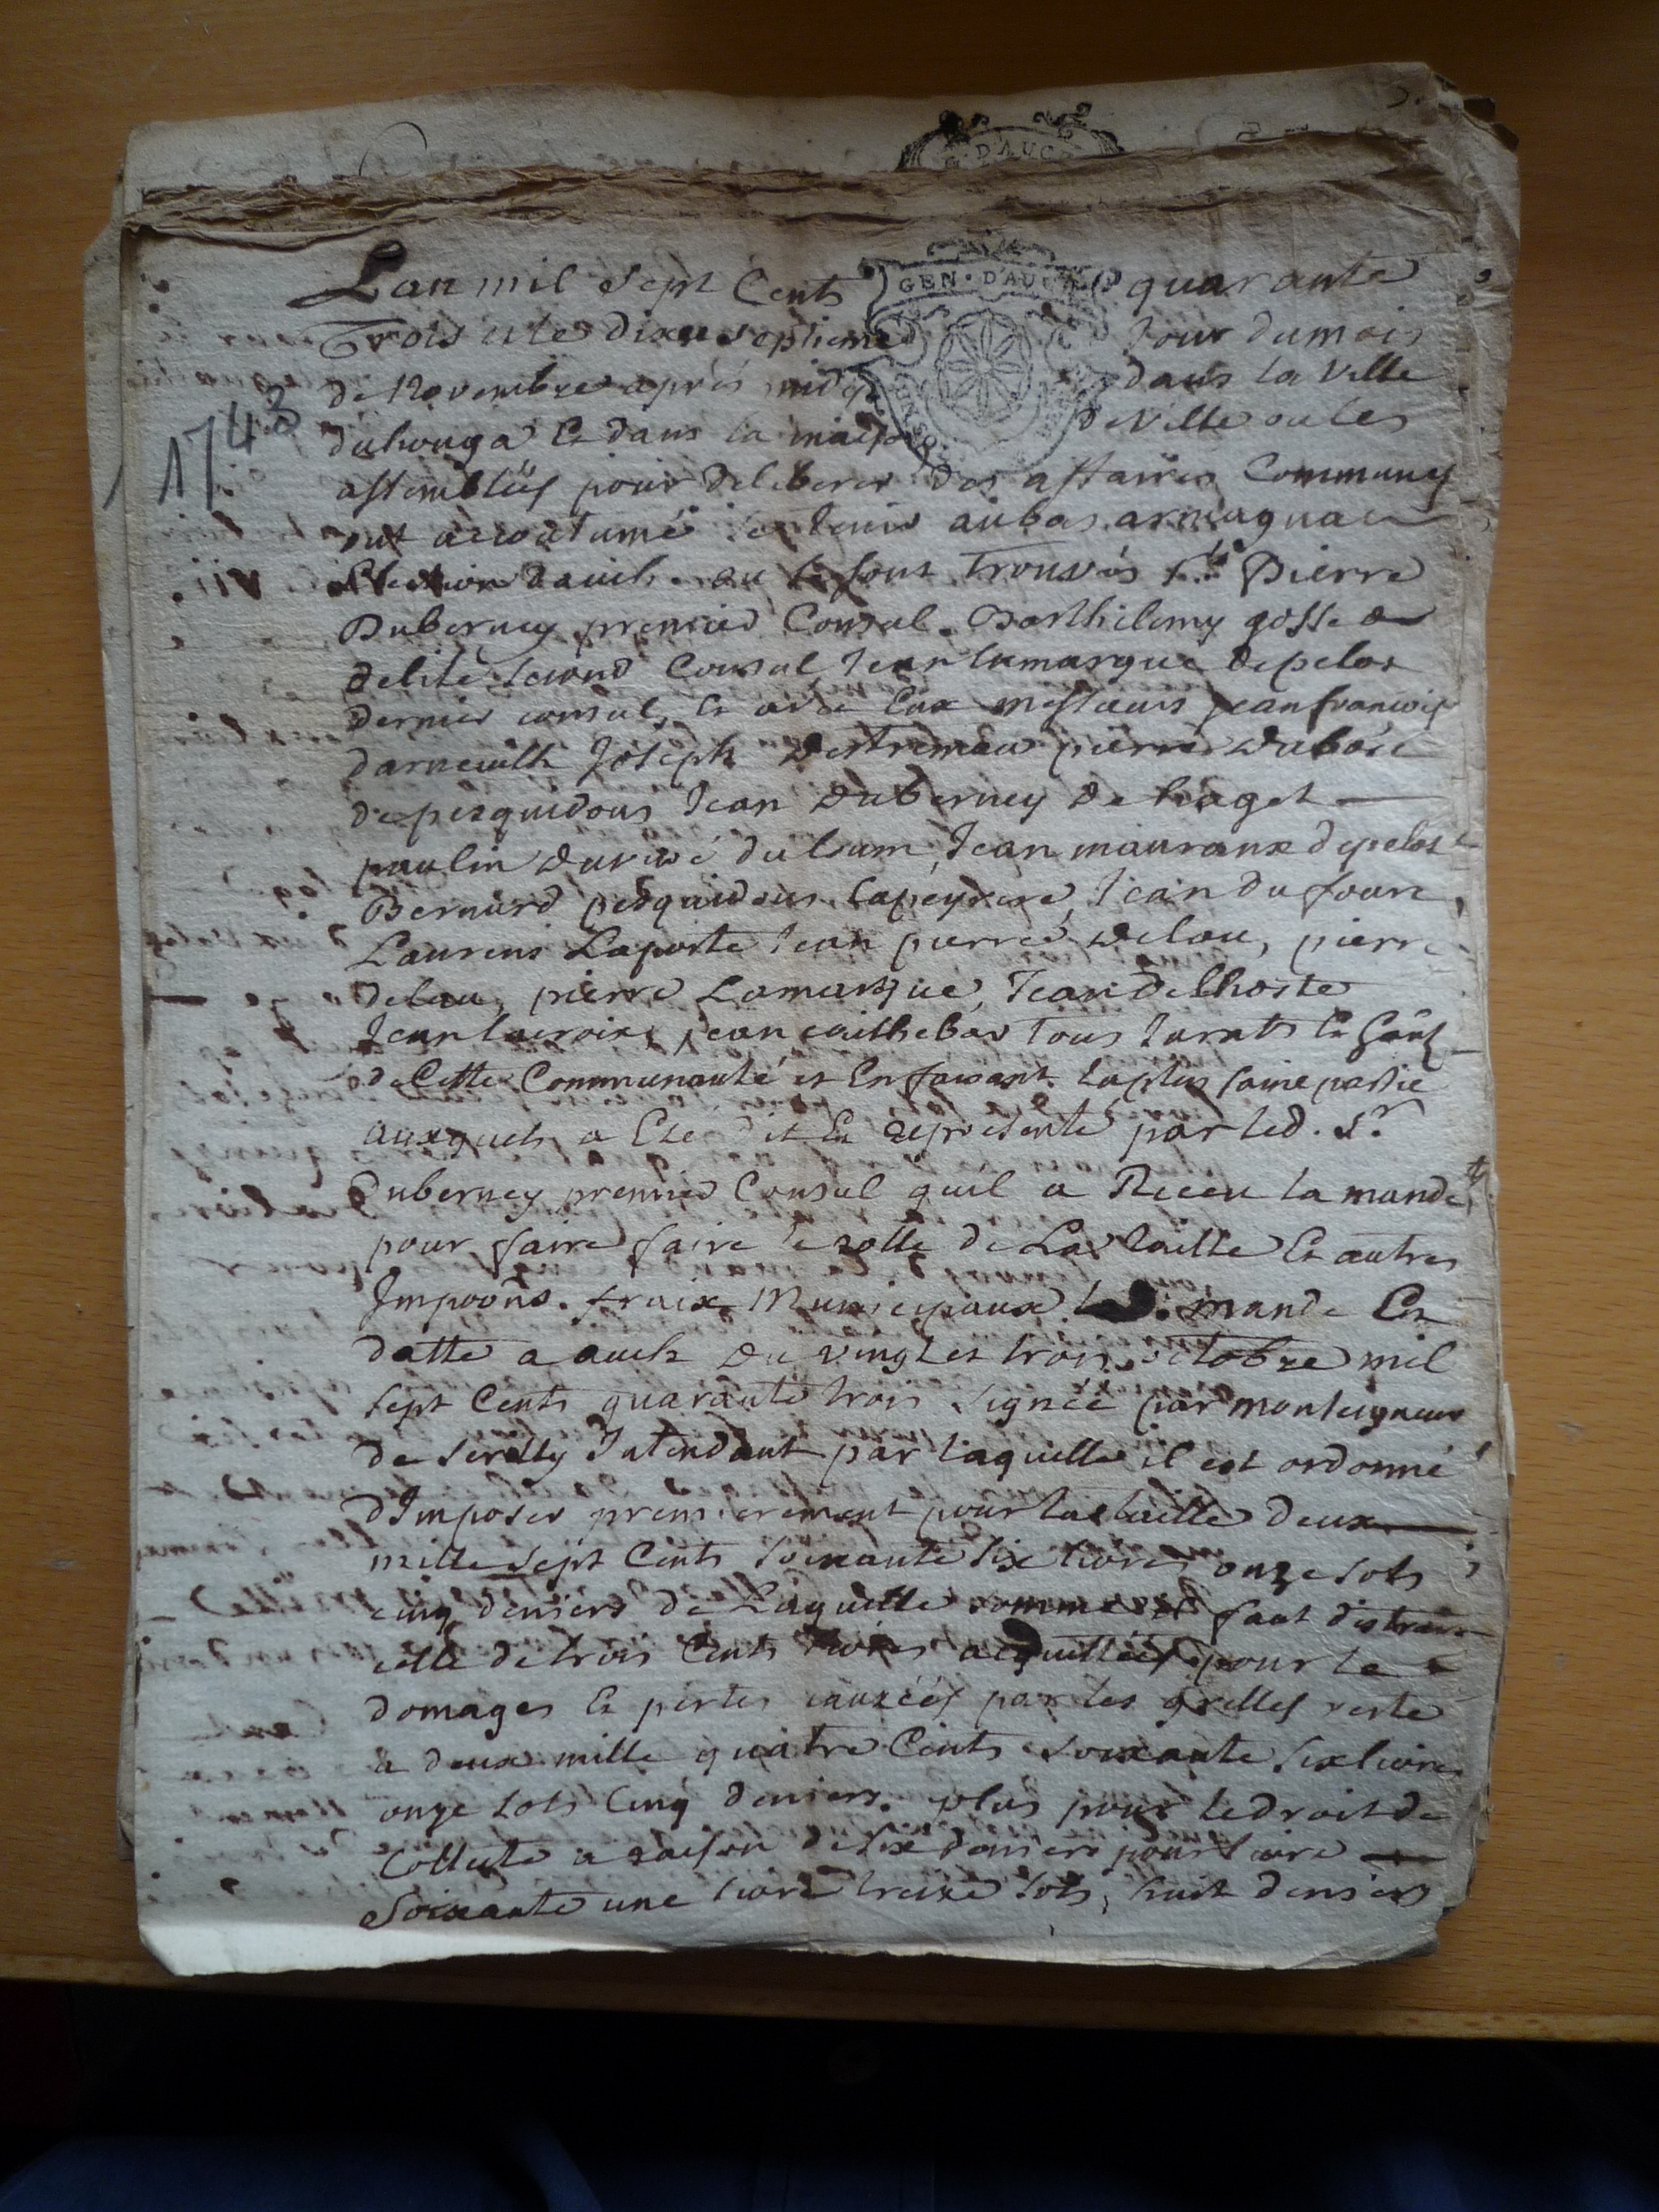 G. D'AUC
GEN. D'AUCH
Lan mil sept Cents quarante
Trois et le dix et septieme Jour du mois
de Novembre apres midy dans la Ville
1743
duhouga Et dans la maison de Ville ou les
assemblées pour deliberer des affaires Communes
ont accoutumé se tenir au bas armagnac
Election dauch. ou se sont trouvés Pierre
Duberney premier Consul. Barthelemy gosse
delile second Consul Jean lamarque depelos
dernier consul, Et avec Eux messieurs jean francois
darneuilh Joseph destremau pierre dubosc
de pesquidous Jean duberney de haget
paulin du Jean mauranx depelos
Bernard pesquidous lapeyrere, Jean dufour
Laurens Laporte Jean pierre delau, pierre
delau, pierre Lamarque, Jean delhoste
Jean lacroix, jean cailhebar tous Jurats Et
de Cette Communauté et En faisant la plus saine partie
auxquels a Eté dit Et representé par led. Sr.
Duberney premier Consul quil a Receu la mande
pour faire faire le rolle de La taille Et autres
Impoons. fraix Municipaux. mande En
datte a auch du vingt et trois octobre mil
sept Cents quarante trois signée par monseigneur
de serilly Intendant par laquelle il est ordonné
dImposer premierement pour la taille deux
mille sept Cents soixante six livres onze sols
cinq deniers de Laquelle somme il faut distraire
celle de trois Cents livres acquittées pour le
domages Et pertes cauzées par les grelles reste
a deux mille quatre Cents soixante six livres
onze sols Cinq deniers. plus pour le droit de
Collecte a raison de six deniers pour livre
Soixante une livre treize sols, huit deniers